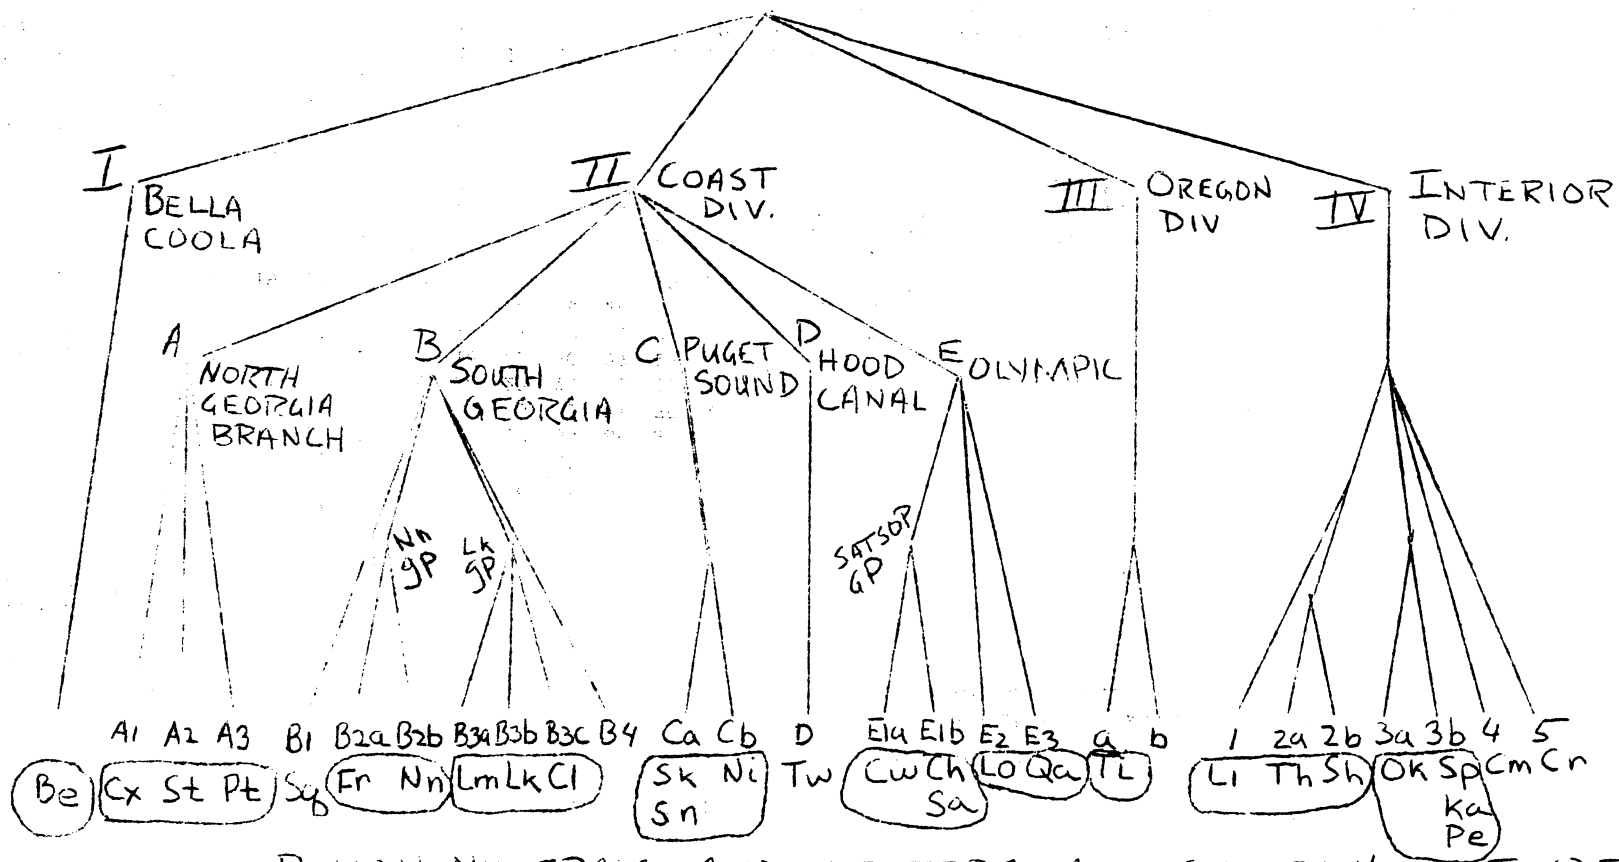 I
BELLA
COOLA
II
COAST
DIV.
III
OREGON
DIV
IV
INTERIOR
DIV.
A
NORTH
GEORGIA
BRANCH
B
SOUTH
GEORGIA
C
PUGET
SOUND
D
HOOD
CANAL
E
OLYMPIC
Nn
gp
Lk
gp.
SATSOP
GP
A1 A2 A3 B1 B2a B2b B3a B3b B3c B4 Ca Cb D E1a E1b E2 E3 a b 1 2a 2b 3a 3b 4 5
Be Cx St Pt Sq Fr Nn Lm Lk Cl Sk Ni Tw Cw Ch Lo Qa TL Li Th Sh Ok Sp Cm Cr
Sn Sa Ka
Pe